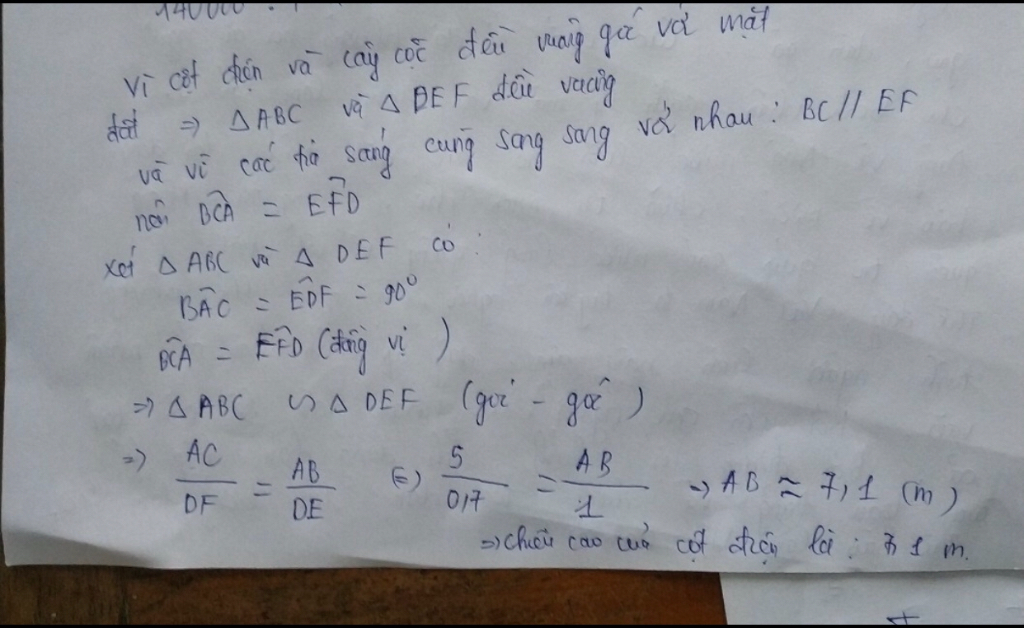 140000
Vì cột điện và cây cọc đều vuông góc với mặt
đất => △ABC và △DEF đều vuông
và vì các tia sáng cùng song song với nhau : BC // EF
nên BĈA = EF̂D
xét △ABC và △ DEF có :
BÂC = ED̂F = 90°
BĈA = EF̂D (đồng vị )
=> △ABC ∽ △ DEF (góc - góc )
=> AC/DF = AB/DE (=) 5/0,7 = AB/1 => AB ≈ 7,1 (m)
=> chiều cao của cột điện là : 7 1 m.